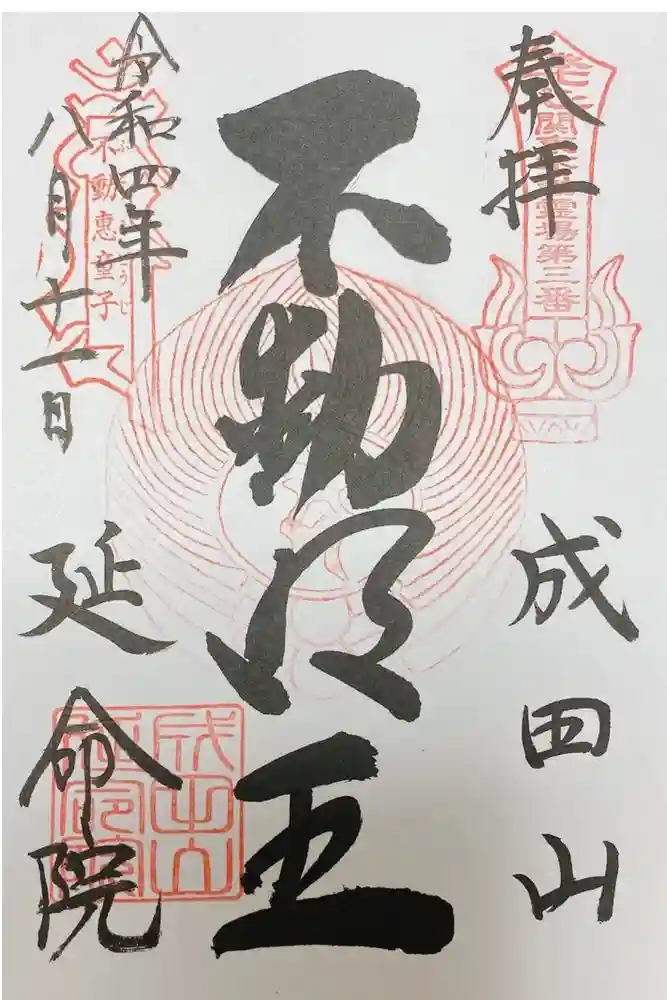 奉拝
成田山
不動明王
令和四年
八月十一日
延命院
関東
霊場第三番
不動恵童子
成田山